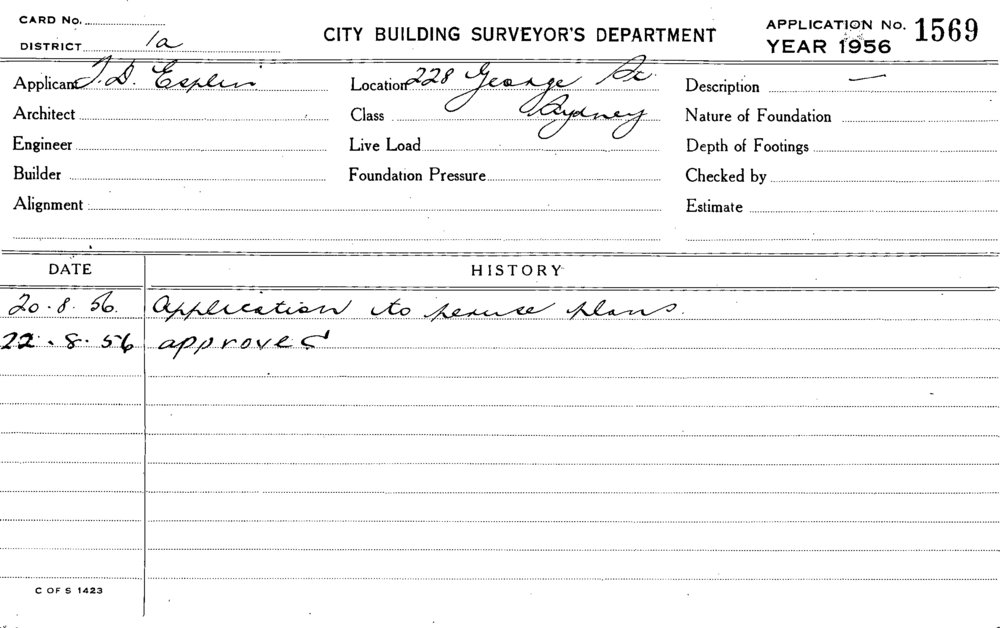 CARD No.
DISTRICT 1a
CITY BUILDING SURVEYOR'S DEPARTMENT
APPLICATION No. 1569
YEAR 1956
Applicant T. D. Esplin
Location 228 George St.
Description —
Architect
Class Sydney
Nature of Foundation
Engineer
Live Load
Depth of Footings
Builder
Foundation Pressure
Checked by
Alignment
Estimate
DATE HISTORY
20.8.56. Application to peruse plans.
22.8.56 approved
C OF S 1423